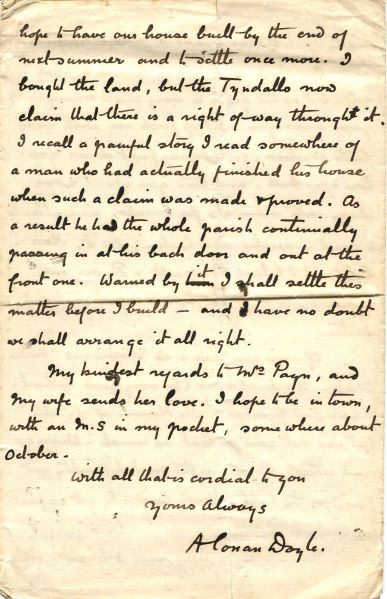 hope to have our house built by the end of
next summer and to settle once more. I
bought the land, but the Tyndalls now
claim that there is a right of way through it.
I recall a painful story I read somewhere of
a man who had actually finished his house
when such a claim was made & proved. As
a result he had the whole parish continually
passing in at his back door and out at the
front one. Warned by it I shall settle this
matter before I build – and I have no doubt
we shall arrange it all right.
My kindest regards to Mrs Payn, and
my wife sends her love. I hope to be in town,
with an M.S in my pocket, somewhere about
October.
With all that is cordial to you
Yours Always
A Conan Doyle.